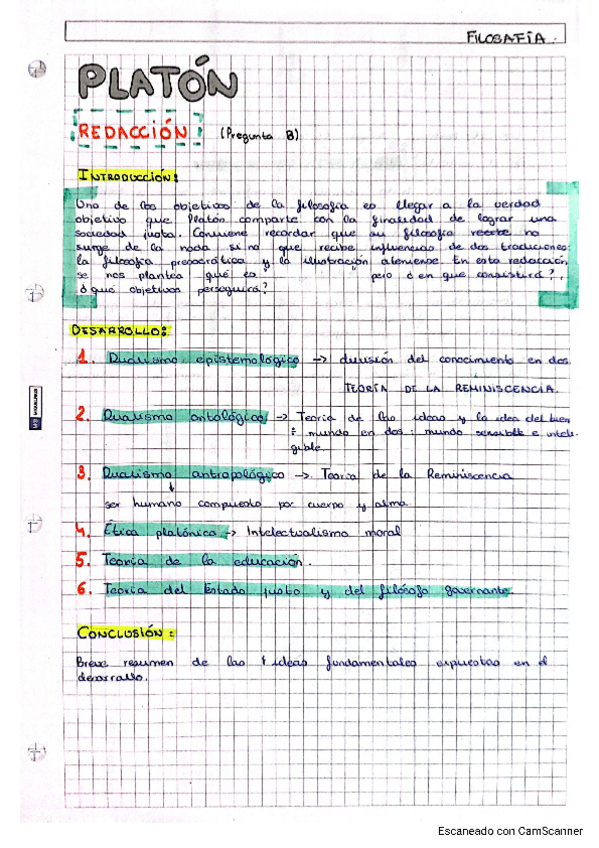 FILOSAFÍA.
PLATÓN
REDACCIÓN : (Pregunta B)
INTRODUCCIÓN:
Uno de los objetivos de la filosofía es llegar a la verdad
objetivo que Platón comparte con la finalidad de lograr una
sociedad justa. Conviene recordar que su filosofía no
surge de la nada si no que recibe influencias de dos tradiciones:
la filosofía presocrática y la ilustración ateniense. En esta redacción
se nos plantea qué es " " pero ¿en qué consistirá?,
¿qué objetivos perseguirá?
DESARROLLO:
1. Dualismo epistemológico -> división del conocimiento en dos
TEORÍA DE LA REMINISCENCIA.
2. Dualismo ontológico -> Teoría de las ideas y la idea del bien
: mundo en dos: mundo sensible e inteli-
gible.
3. Dualismo antropológico -> Teoría de la Reminiscencia
↓
ser humano compuesto por cuerpo y alma.
4. Ética platónica -> Intelectualismo moral
5. Teoría de la educación.
6. Teoría del Estado justo y del filósofo governante.
CONCLUSIÓN:
Breve resumen de las ideas fundamentales expuestas en el
desarrollo.
Escaneado con CamScanner